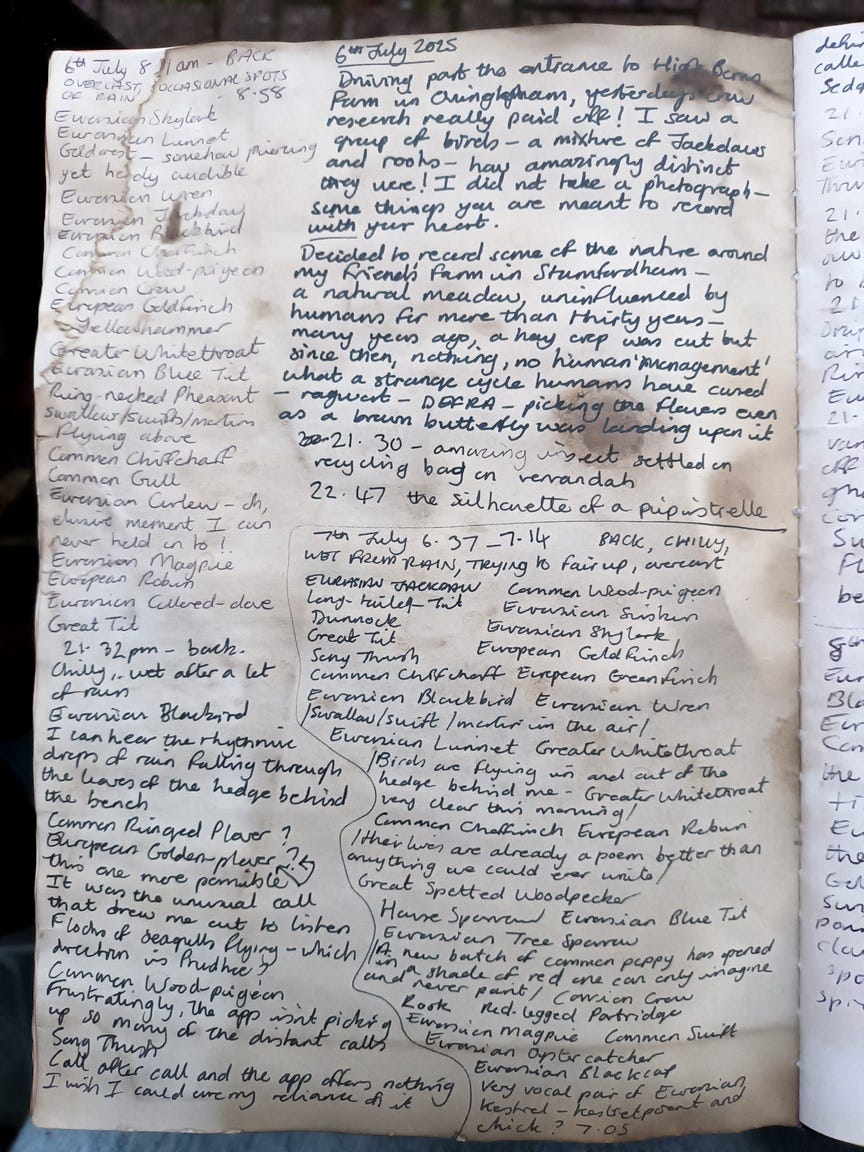 6th July 8. 1am - BACK
OVERCAST, OCCASIONAL SPOTS
OF RAIN - 8.58
Eurasian Skylark
Eurasian Linnet
Goldcrest - somehow piercing
yet hardly audible
Eurasian Wren
Eurasian Jackdaw
European Blackbird
Common Chaffinch
Common Wood-pigeon
Carrion Crow
European Goldfinch
Yellowhammer
Greater Whitethroat
Eurasian Blue Tit
Ring-necked Pheasant
swallow/swifts/martins
flying above
Common Chiffchaff
Common Gull
Eurasian Curlew - oh,
elusive moment I can
never hold on to!
Eurasian Magpie
European Robin
Eurasian Collared-dove
Great Tit
21. 32pm - back.
Chilly,.. wet after a lot
of rain
Eurasian Blackbird
I can hear the rhythmic
drops of rain falling through
the leaves of the hedge behind
the bench
Common Ringed Plover ?
European Golden-plover ?
this one more possible
It was the unusual call
that drew me out to listen
Flocks of seagulls flying - which
direction is Prudhoe ?
Common Wood-pigeon
Frustratingly, the app isn't picking
up so many of the distant calls
Song Thrush
Call after call and the app offers nothing
I wish I could cure my reliance of it
6th July 2025
Driving past the entrance to High Barns
Farm in Ovingham, yesterdays crow
research really paid off! I saw a
group of birds - a mixture of Jackdaws
and rooks - how amazingly distinct
they were! I did not take a photograph -
some things you are meant to record
with your heart.
Decided to record some of the nature around
my friend's farm in Stamfordham -
a natural meadow, uninfluenced by
humans for more than thirty years -
many years ago, a hay crop was cut but
since then, nothing, no human 'management'
what a strange cycle humans have cursed
- ragwort - DEFRA - picking the flowers even
as a brown butterfly was landing upon it
21. 30 - amazing insect settled on
recycling bag on verrandah
22. 47 the silhouette of a pipistrelle
7th July 6. 37 - 7.14 BACK, CHILLY,
WET FROM RAIN, TRYING TO fair up, overcast
EURASIAN JACKDAW Common Wood-pigeon
Long-tailed Tit Eurasian Siskin
Dunnock Eurasian Skylark
Great Tit European Goldfinch
Song Thrush
Common Chiffchaff European Greenfinch
Eurasian Blackbird Eurasian Wren
/swallow/swift/martin in the air/
Eurasian Linnet Greater Whitethroat
/Birds are flying in and out of the
hedge behind me - Greater Whitethroat
very clear this morning/
Common Chaffinch European Robin
/their lives are already a poem better than
anything we could ever write/
Great Spotted Woodpecker
House Sparrow Eurasian Blue Tit
Eurasian Tree Sparrow
/A new batch of common poppy has opened
in a shade of red one can only imagine
and never paint/ Carrion Crow
Rook Red-legged Partridge
Eurasian Magpie Common Swift
Eurasian Oystercatcher
Eurasian Blackcap
Very vocal pair of Eurasian
Kestrel - kestrel parent and
chick? 7.05